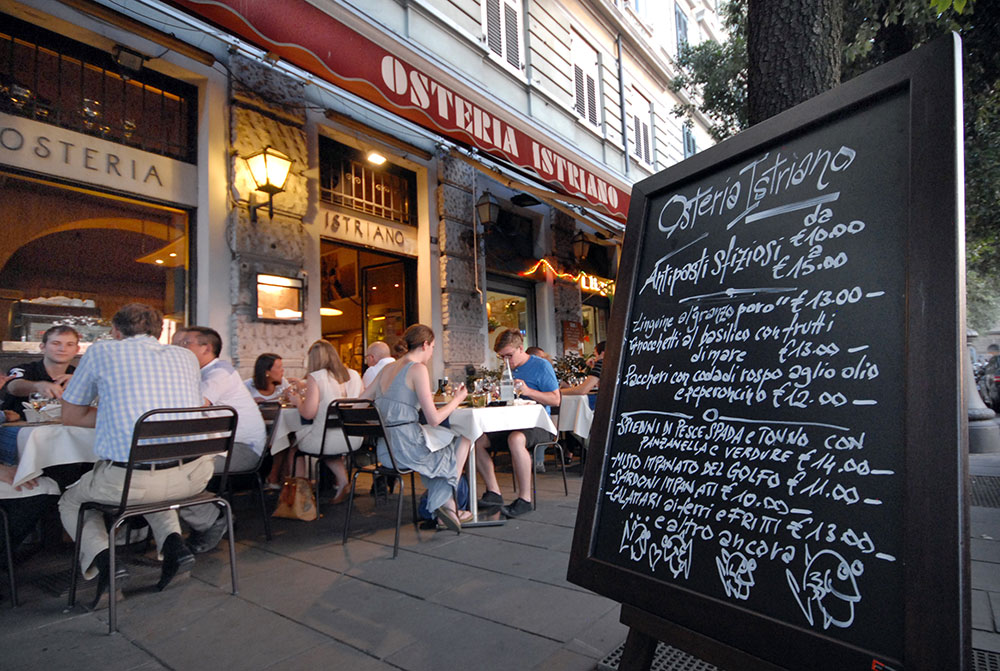 OSTERIA ISTRIANO
OSTERIA
ISTRIANO
Osteria Istriano
da
Antipasti sfiziosi €10.00
a
€15.00
Linguine al "granzo poro" €13.00-
Gnocchetti al basilico con frutti
di mare €13.00-
Paccheri con coda di rospo aglio olio
e peperoncino €12.00
SPIEDINI DI PESCE SPADA e TONNO CON
PANZANELLA e VERDURE €14.00-
-MISTO IMPANATO DEL GOLFO €11.00-
-SARDONI IMPANATI €10.00-
-CALAMARI ai ferri e FRITTI €13.00-
e altro ancora